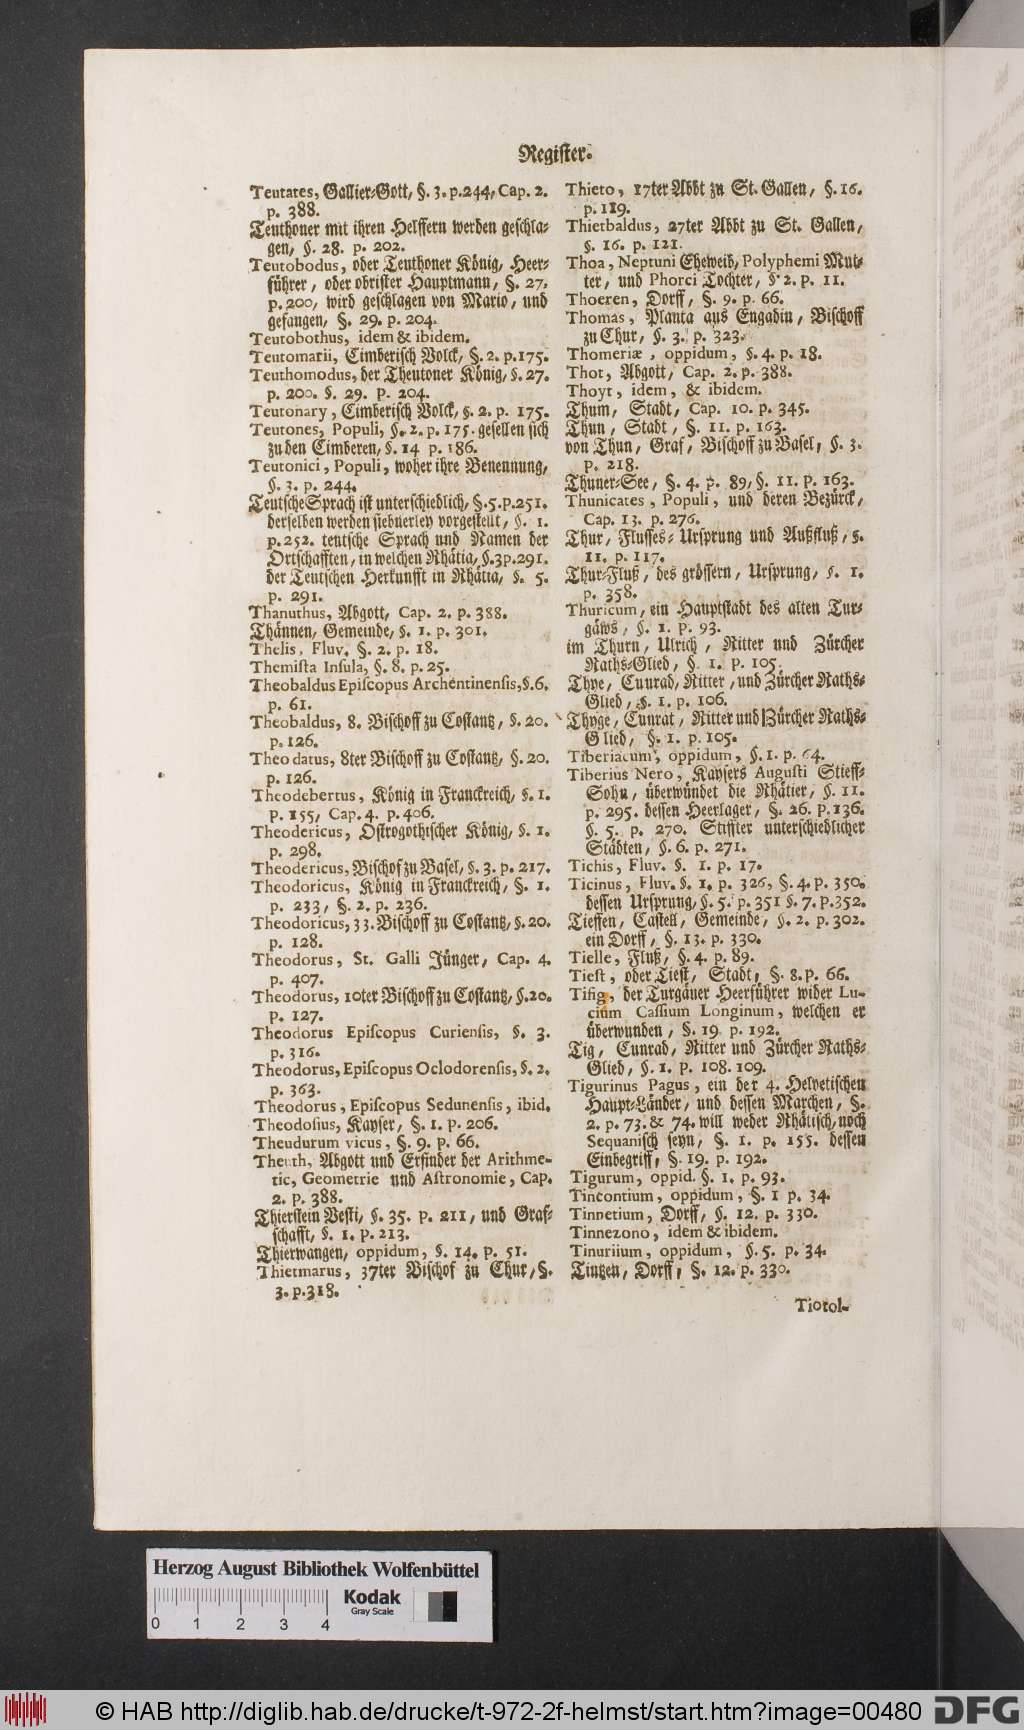 Register.
Teutates, Gallier-Gott, §. 3. p. 244, Cap. 2.
p. 388.
Teuthoner mit ihren Helffern werden geschla-
gen, §. 28. p. 202.
Teutobodus, oder Teuthoner König, Heer-
führer, oder obrister Hauptmann, §. 27.
p. 200, wird geschlagen von Mario, und
gefangen, §. 29. p. 204.
Teutobothus, idem & ibidem.
Teutomarii, Cimberisch Volck, §. 2. p. 175.
Teuthomodus, der Theutoner König, §. 27.
p. 200. §. 29. p. 204.
Teutonary, Cimberisch Volck, §. 2. p. 175.
Teutones, Populi, §. 2. p. 175. gesellen sich
zu den Cimberen, §. 14 p. 186.
Teutonici, Populi, woher ihre Benennung,
§. 3. p. 244.
Teutsche Sprach ist unterschiedlich, §. 5. p. 251.
derselben werden siebnerley vorgestellt, §. 1.
p. 252. teutsche Sprach und Namen der
Ortschafften, in welchen Rhätia, §. 3 p. 291.
der Teutschen Herkunfft in Rhätia, §. 5.
p. 291.
Thanuthus, Abgott, Cap. 2. p. 388.
Thännen, Gemeinde, §. 1. p. 301.
Thelis, Fluv. §. 2. p. 18.
Themista Insula, §. 8. p. 25.
Theobaldus Episcopus Archentinensis, §. 6.
p. 61.
Theobaldus, 8. Bischoff zu Costantz, §. 20.
p. 126.
Theodatus, 8ter Bischoff zu Costantz, §. 20.
p. 126.
Theodebertus, König in Franckreich, §. 1.
p. 155, Cap. 4. p. 406.
Theodericus, Ostrogothischer König, §. 1.
p. 298.
Theodericus, Bischof zu Basel, §. 3. p. 217.
Theodoricus, König in Franckreich, §. 1.
p. 233, §. 2. p. 236.
Theodoricus, 33. Bischoff zu Costantz, §. 20.
p. 128.
Theodorus, St. Galli Jünger, Cap. 4.
p. 407.
Theodorus, 10ter Bischoff zu Costantz, §. 20.
p. 127.
Theodorus Episcopus Curiensis, §. 3.
p. 316.
Theodorus, Episcopus Oclodorensis, §. 2.
p. 363.
Theodorus, Episcopus Sedunensis, ibid.
Theodosius, Kayser, §. 1. p. 206.
Theudurum vicus, §. 9. p. 66.
Theuth, Abgott und Erfinder der Arithme-
tic, Geometrie und Astronomie, Cap.
2. p. 388.
Thierstein Vesti, §. 35. p. 211, und Graf-
schafft, §. 1. p. 213.
Thierwangen, oppidum, §. 14. p. 51.
Thietmarus, 37ter Bischof zu Chur, §.
3. p. 318.
Thieto, 17ter Abbt zu St. Gallen, §. 16.
p. 119.
Thietbaldus, 27ter Abbt zu St. Gallen,
§. 16. p. 121.
Thoa, Neptuni Eheweib, Polyphemi Mut-
ter, und Phorci Tochter, §. 2. p. 11.
Thoeren, Dorff, §. 9. p. 66.
Thomas, Planta aus Engadin, Bischoff
zu Chur, §. 3. p. 323.
Thomeriæ, oppidum, §. 4. p. 18.
Thot, Abgott, Cap. 2. p. 388.
Thoyt, idem, & ibidem.
Thum, Stadt, Cap. 10. p. 345.
Thun, Stadt, §. 11. p. 163.
von Thun, Graf, Bischoff zu Basel, §. 3.
p. 218.
Thuner-See, §. 4. p. 89, §. 11. p. 163.
Thunicates, Populi, und deren Bezürck,
Cap. 13. p. 276.
Thur, Flusses-Ursprung und Außfluß, §.
11. p. 117.
Thur-Fluß, des grössern, Ursprung, §. 1.
p. 358.
Thuricum, ein Hauptstadt des alten Tur-
gäws, §. 1. p. 93.
im Thurn, Ulrich, Ritter und Zürcher
Raths-Glied, §. 1. p. 105.
Thye, Cunrad, Ritter, und Zürcher Raths-
Glied, §. 1. p. 106.
Thyge, Cunrat, Ritter und Zürcher Raths-
Glied, §. 1. p. 105.
Tiberiacum, oppidum, §. 1. p. 64.
Tiberius Nero, Kaysers Augusti Stieff-
Sohn, überwündet die Rhätier, §. 11.
p. 295. dessen Heerlager, §. 26. p. 136.
§. 5. p. 270. Stiffter unterschiedlicher
Städten, §. 6. p. 271.
Tichis, Fluv. §. 1. p. 17.
Ticinus, Fluv. §. 1. p. 326, §. 4. p. 350.
dessen Ursprung, §. 5. p. 351 §. 7. p. 352.
Tieffen, Castell, Gemeinde, §. 2. p. 302.
ein Dorff, §. 13. p. 330.
Tielle, Fluß, §. 4. p. 89.
Tiest, oder Tiest, Stadt, §. 8. p. 66.
Tifig, der Turgäuer Heerführer wider Lu-
cium Cassium Longinum, welchen er
überwunden, §. 19. p. 192.
Tig, Cunrad, Ritter und Zürcher Raths-
Glied, §. 1. p. 108. 109.
Tigurinus Pagus, ein der 4. Helvetischen
Haupt-Länder, und dessen Marchen, §.
2. p. 73. & 74. will weder Rhätisch, noch
Sequanisch seyn, §. 1. p. 155. dessen
Einbegriff, §. 19. p. 192.
Tigurum, oppid. §. 1. p. 93.
Tincontium, oppidum, §. 1 p. 34.
Tinnetium, Dorff, §. 12. p. 330.
Tinnezono, idem & ibidem.
Tinuriium, oppidum, §. 5. p. 34.
Tintzen, Dorff, §. 12. p. 330.
Tiorol-
Herzog August Bibliothek Wolfenbüttel
Kodak
Gray Scale
0 1 2 3 4
© HAB http://diglib.hab.de/drucke/t-972-2f-helmst/start.htm?image=00480
DFG